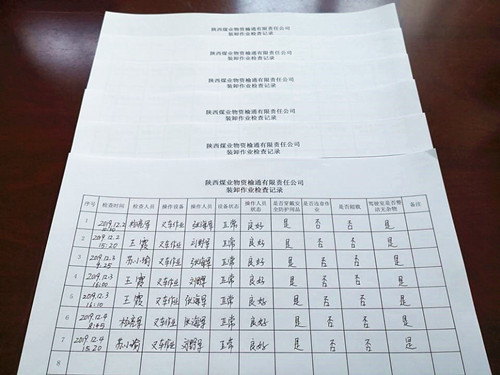 陕西煤业物资榆通有限责任公司
装卸作业检查记录
陕西煤业物资榆通有限责任公司
装卸作业检查记录
陕西煤业物资榆通有限责任公司
装卸作业检查记录
陕西煤业物资榆通有限责任公司
装卸作业检查记录
陕西煤业物资榆通有限责任公司
装卸作业检查记录
陕西煤业物资榆通有限责任公司
装卸作业检查记录
序号 检查时间 检查人员 操作设备 操作人员 设备状态 操作人员状态 是否穿戴安全防护用品 是否违章作业 是否超载 驾驶室是否整洁无杂物 备注
1 2019.12.2 叉车作业 正常 良好 是 否 否 是
2 2019.12.2 15:20 王霞 叉车作业 正常 良好 是 否 否 是
3 2019.12.3 苏小瑜 叉车作业 正常 良好 是 否 否 是
4 2019.12.3 王霞 叉车作业 正常 良好 是 否 否 是
5 2019.12.3 16:10 王霞 叉车作业 正常 良好 是 否 否 是
6 2019.12.4 8:45 叉车作业 正常 良好 是 否 否 是
7 2019.12.4 15:20 苏小瑜 叉车作业 正常 良好 是 否 否 是
8